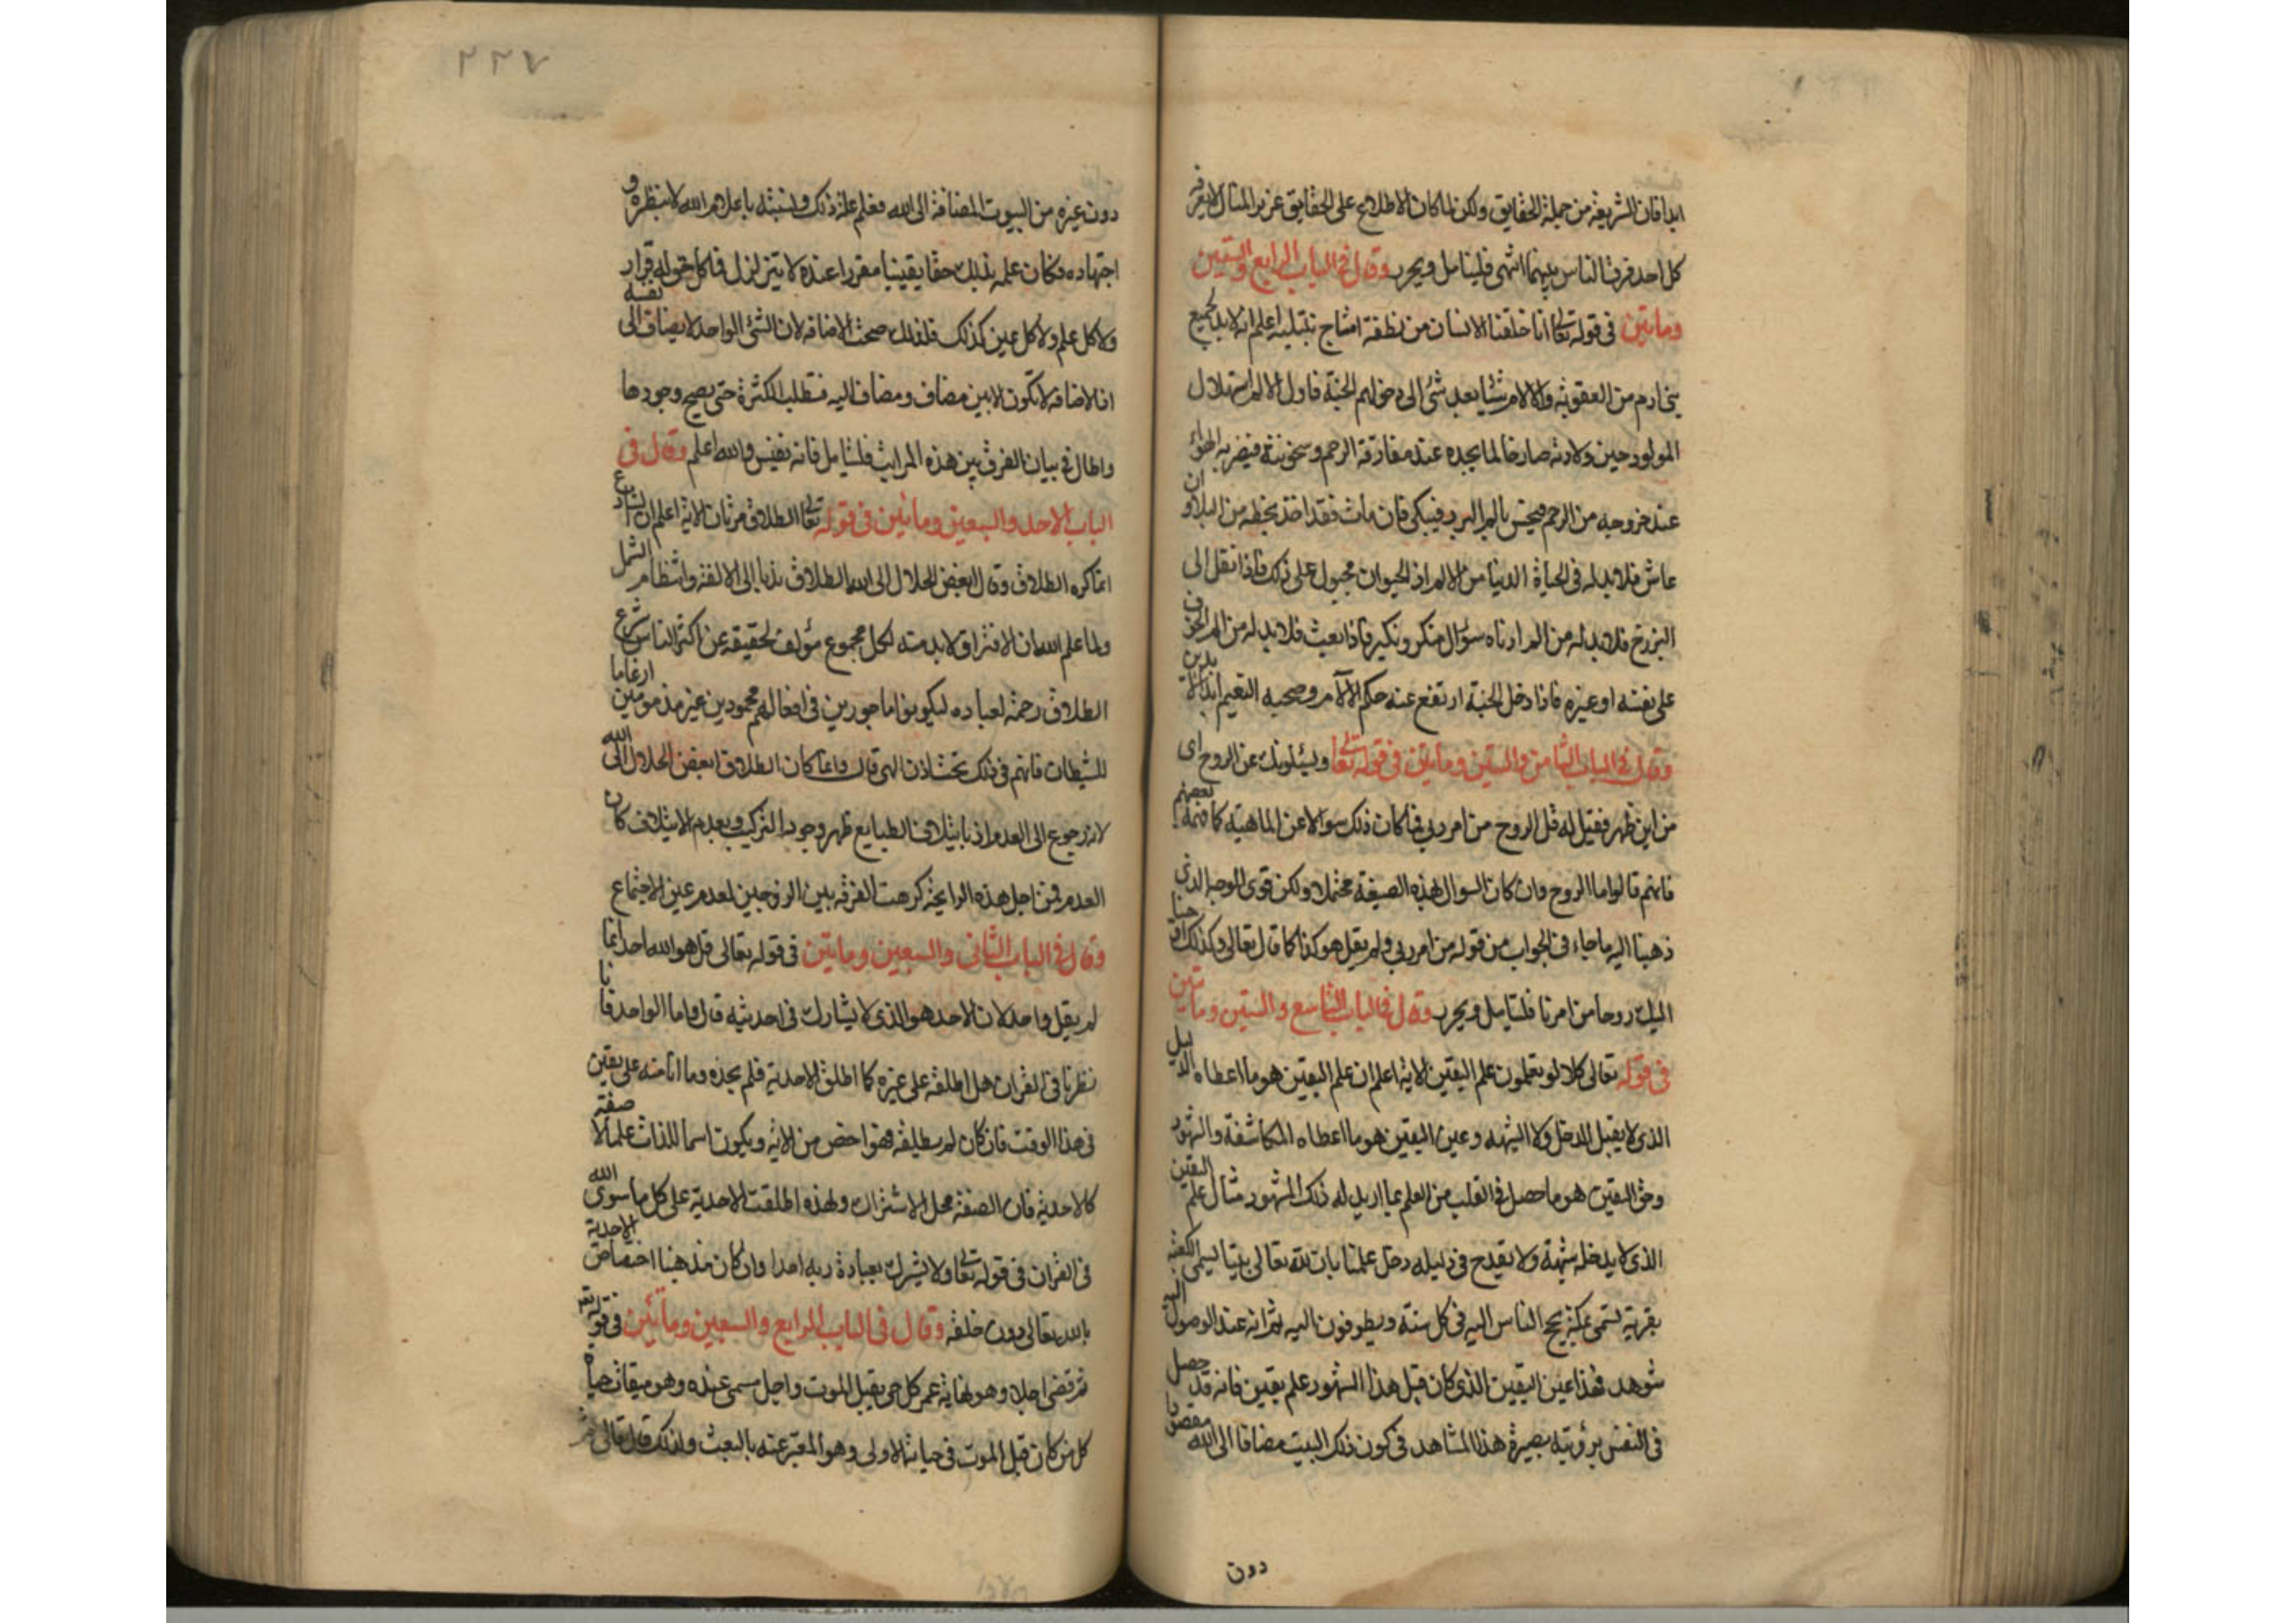 ابدا فان الشريعة من جملة الحقايق ولكن لما كان الاطلاع على الحقايق عزيز المنال لا يعرفه
كل احد فرقت الناس بينهما انتهى فليتامل ويحرر وقال في الباب الرابع والستين
ومايتين في قوله تعالى انا خلقنا الانسان من نطفة امشاج نبتليه اعلم انه لا بد لجميع
بني ادم من العقوبة والالام شيئا بعد شئ الى دخولهم الجنة فاول الالم استهلال
المولود حين ولادته صارخا لما يجده عند مفارقة الرحم وسخونته فيضربه الهواء
عند خروجه من الرحم فيحس بالم البرد فيبكى فان مات فقد اخذ بحظه من البلا وان
عاش فلا بد له في الحياة الدنيا من الالم اذ الحيوان مجبول على ذلك فاذا نقل الى
البرزخ فلا بد له من الم ادناه سؤال منكر ونكير فاذا بعث فلا بد له من الم الخوف
على نفسه او غيره فاذا دخل الجنة ارتفع عنه حكم الآلام وصحبه النعيم ابد الابدين
وقال في الباب الثامن والستين ومايتين في قوله تعالى ويسئلونك عن الروح اى
من اين ظهر فقيل له قل الروح من امر ربي فما كان ذلك سوالا عن الماهية كما فهمه بعضهم
فانهم قالوا ما الروح وان كان السوال بهذه الصيغة محتملا ولكن قوى الوجه الذى
ذهبنا اليه ما جاء فى الجواب من قوله من امر ربي ولم يقل هو كذا كما قال تعالى وكذلك اوحينا
اليك روحا من امرنا فليتامل ويحرر وقال في الباب التاسع والستين ومايتين
في قوله تعالى كلا لو تعلمون علم اليقين الاية اعلم ان علم اليقين هو ما اعطاه الدليل
الذى لا يقبل الدخل ولا الشبهه وعين اليقين هو ما اعطاه المكاشفة والشهود
وحق اليقين هو ما حصل في القلب من العلم بما اريد له ذلك المشهود مثال علم اليقين
الذى لا يدخله شبهة ولا يقدح فى دليله دخل علمنا بان لله تعالى بيتا ليسمى الكعبة
بقرية تسمى بمكة يحج الناس اليه فى كل سنة ويطوفون اليه ثم انه عند الوصول اليه
شوهد فهذا عين اليقين الذى كان قبل هذا الشهود علم يقين فانه قد حصل
فى النفس برؤيته بصيرة هذا المشاهد فى كون ذلك البيت مضافا الى الله مقصودا
دون
٢٢٧
دون غيره من البيوت المضافة الى الله فعلم علة ذلك ونسبته باعلام الله لا بنظره و
اجتهاده فكان علمه بذلك حقا يقينيا مقررا عنده لا يتزلزل فما كل حق له قرار
ولا كل علم ولا كل عين كذلك فلذلك صحت الاضافه لان الشئ الواحد لا يضاف الى نفسه
اذ الاضافه لا تكون الا بين مضاف ومضاف اليه فتطلب الكثرة حتى يصح وجودها
واطال في بيان الفرق بين هذه المراتب فليتامل فانه نفيس والله اعلم وقال في
الباب الاحد والسبعين ومائتين فى قوله تعالى الطلاق مرتان الاية اعلم ان الشارع
انما كره الطلاق وقال ابغض الحلال الى الله الطلاق ندبا الى الالفة وانتظام الشمل
ولما علم الله ان الافتراق لا بد منه لكل مجموع مؤلف لحقيقه عن اكثر الناس شرع
الطلاق رحمة لعباده ليكونوا ماجورين فى افعالهم محمودين غير مذمومين ارغاما
للشيطان فانهم فى ذلك تحت اذن الهى قال وانما كان الطلاق ابغض الحلال الى الله
لانه رجوع الى العدم اذ بايتلاف الطبايع ظهر وجود التركيب وبعدم الايتلاف كان
العدم فمن اجل هذه الرايحة كرهت الفرقه بين الزوجين لعدم عين الاجتماع
وقال في الباب الثانى والسبعين ومايتين فى قوله تعالى قل هو الله احد انما
لم يقل واحد لان الاحد هو الذى لا يشارك فى احديته قال واما الواحد فانا
نظرنا فى القران هل اطلقه على غيره كما اطلق الاحدية فلم يجده وما انا منه على يقين
فى هذا الوقت فان كان لم يطلقه فهو اخص من الاية ويكون اسما للذات علما لا صفة
كالاحدية فان الصفة محل الاشتراك ولهذه اطلقت الاحدية على كل ما سوى الله
فى القران فى قوله تعالى ولا يشرك بعبادة ربه احدا وان كان مذهبنا اختصاص الاحدية
بالله تعالى دون خلقه وقال فى الباب الرابع والسبعين ومائتين فى قوله تعالى
ثم قضى اجلا وهو نهاية عمر كل حي يقبل الموت واجل مسمى عنده وهو ميقات حياة
كل من كان قبل الموت فى حياته الاولى وهو المعبر عنه بالبعث ولذلك قال تعالى ثم